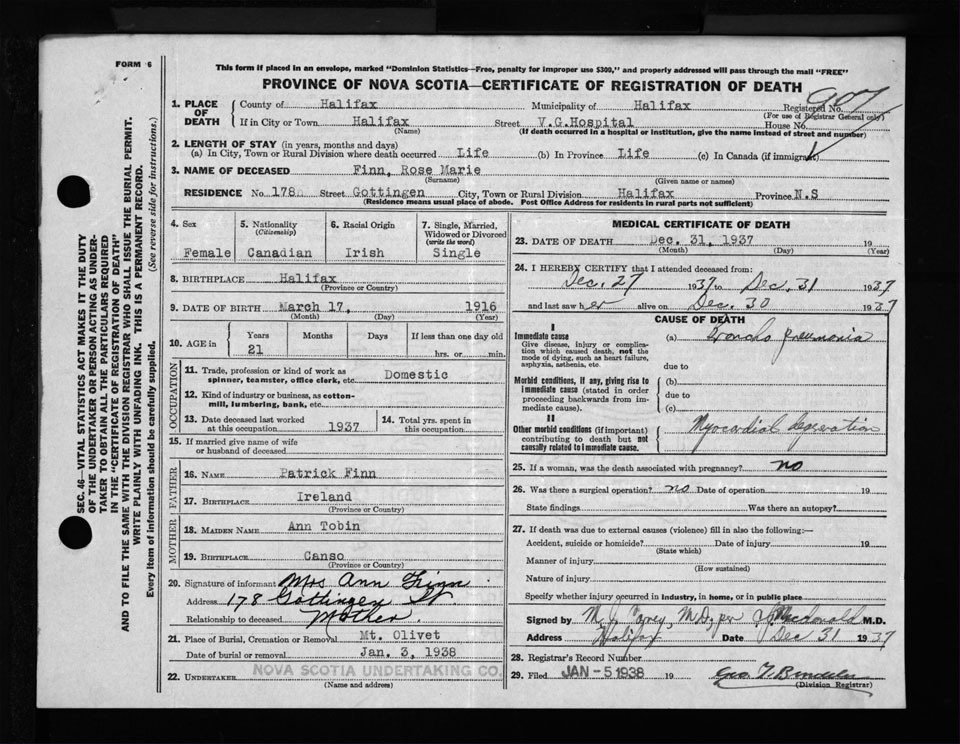 FORM 6
This form if placed in an envelope, marked "Dominion Statistics—Free, penalty for improper use $300," and properly addressed will pass through the mail "FREE"
PROVINCE OF NOVA SCOTIA—CERTIFICATE OF REGISTRATION OF DEATH
907
1. PLACE OF DEATH County of Halifax Municipality of Halifax Registered No.
(For use of Registrar General only)
If in City or Town Halifax Street V.G.Hospital House No.
(Name) (If death occurred in a hospital or institution, give the name instead of street and number)
2. LENGTH OF STAY (in years, months and days)
(a) In City, Town or Rural Division where death occurred Life (b) In Province Life (c) In Canada (if immigrant)
3. NAME OF DECEASED Finn, Rose Marie
(Surname) (Given name or names)
RESIDENCE No. 178 Street Gottingen City, Town or Rural Division Halifax Province N.S
(Residence means usual place of abode. Post Office Address for residents in rural parts not sufficient)
4. Sex 5. Nationality (Citizenship) 6. Racial Origin 7. Single, Married, Widowed or Divorced (write the word)
Female Canadian Irish Single
8. BIRTHPLACE Halifax
(Province or Country)
9. DATE OF BIRTH March 17, 1916
(Month) (Day) (Year)
10. AGE in Years Months Days If less than one day old
21 hrs. or min.
OCCUPATION
11. Trade, profession or kind of work as spinner, teamster, office clerk, etc. Domestic
12. Kind of industry or business, as cotton-mill, lumbering, bank, etc.
13. Date deceased last worked at this occupation 1937 14. Total yrs. spent in this occupation
15. If married give name of wife or husband of deceased
FATHER
16. NAME Patrick Finn
17. BIRTHPLACE Ireland
(Province or Country)
MOTHER
18. MAIDEN NAME Ann Tobin
19. BIRTHPLACE Canso
(Province or Country)
20. Signature of informant Mrs Ann Finn
Address 178 Gottingen St.
Relationship to deceased Mother
21. Place of Burial, Cremation or Removal Mt. Olivet
Date of burial or removal Jan. 3, 1938
22. UNDERTAKER NOVA SCOTIA UNDERTAKING CO.
(Name and address)
MEDICAL CERTIFICATE OF DEATH
23. DATE OF DEATH Dec. 31, 1937 19
(Month) (Day) (Year)
24. I HEREBY CERTIFY that I attended deceased from:
Dec. 27 1937 to Dec. 31 1937
and last saw her alive on Dec. 30 1937
CAUSE OF DEATH
I
Immediate cause (a) Broncho Pneumonia
Give disease, injury or complication which caused death, not the mode of dying, such as heart failure, asphyxia, asthenia, etc.
due to
Morbid conditions, if any, giving rise to immediate cause (stated in order proceeding backwards from immediate cause).
(b)
due to
(c)
II
Other morbid conditions (if important) contributing to death but not causally related to immediate cause. Myocardial degeneration
25. If a woman, was the death associated with pregnancy? no
26. Was there a surgical operation? no Date of operation 19
State findings Was there an autopsy?
27. If death was due to external causes (violence) fill in also the following:—
Accident, suicide or homicide? Date of injury 19
(State which)
Manner of injury
(How sustained)
Nature of injury
Specify whether injury occurred in industry, in home, or in public place
Signed by M. J. M.D. per Macdonald M.D.
Address Halifax Date Dec 31 1937
28. Registrar's Record Number
29. Filed JAN - 5 1938 19 Geo. T.
(Division Registrar)
SEC. 46—VITAL STATISTICS ACT MAKES IT THE DUTY
OF THE UNDERTAKER OR PERSON ACTING AS UNDER-
TAKER TO OBTAIN ALL THE PARTICULARS REQUIRED
IN THE "CERTIFICATE OF REGISTRATION OF DEATH"
AND TO FILE THE SAME WITH THE DIVISION REGISTRAR WHO SHALL ISSUE THE BURIAL PERMIT.
WRITE PLAINLY WITH UNFADING INK. THIS IS A PERMANENT RECORD.
Every item of information should be carefully supplied. (See reverse side for instructions.)